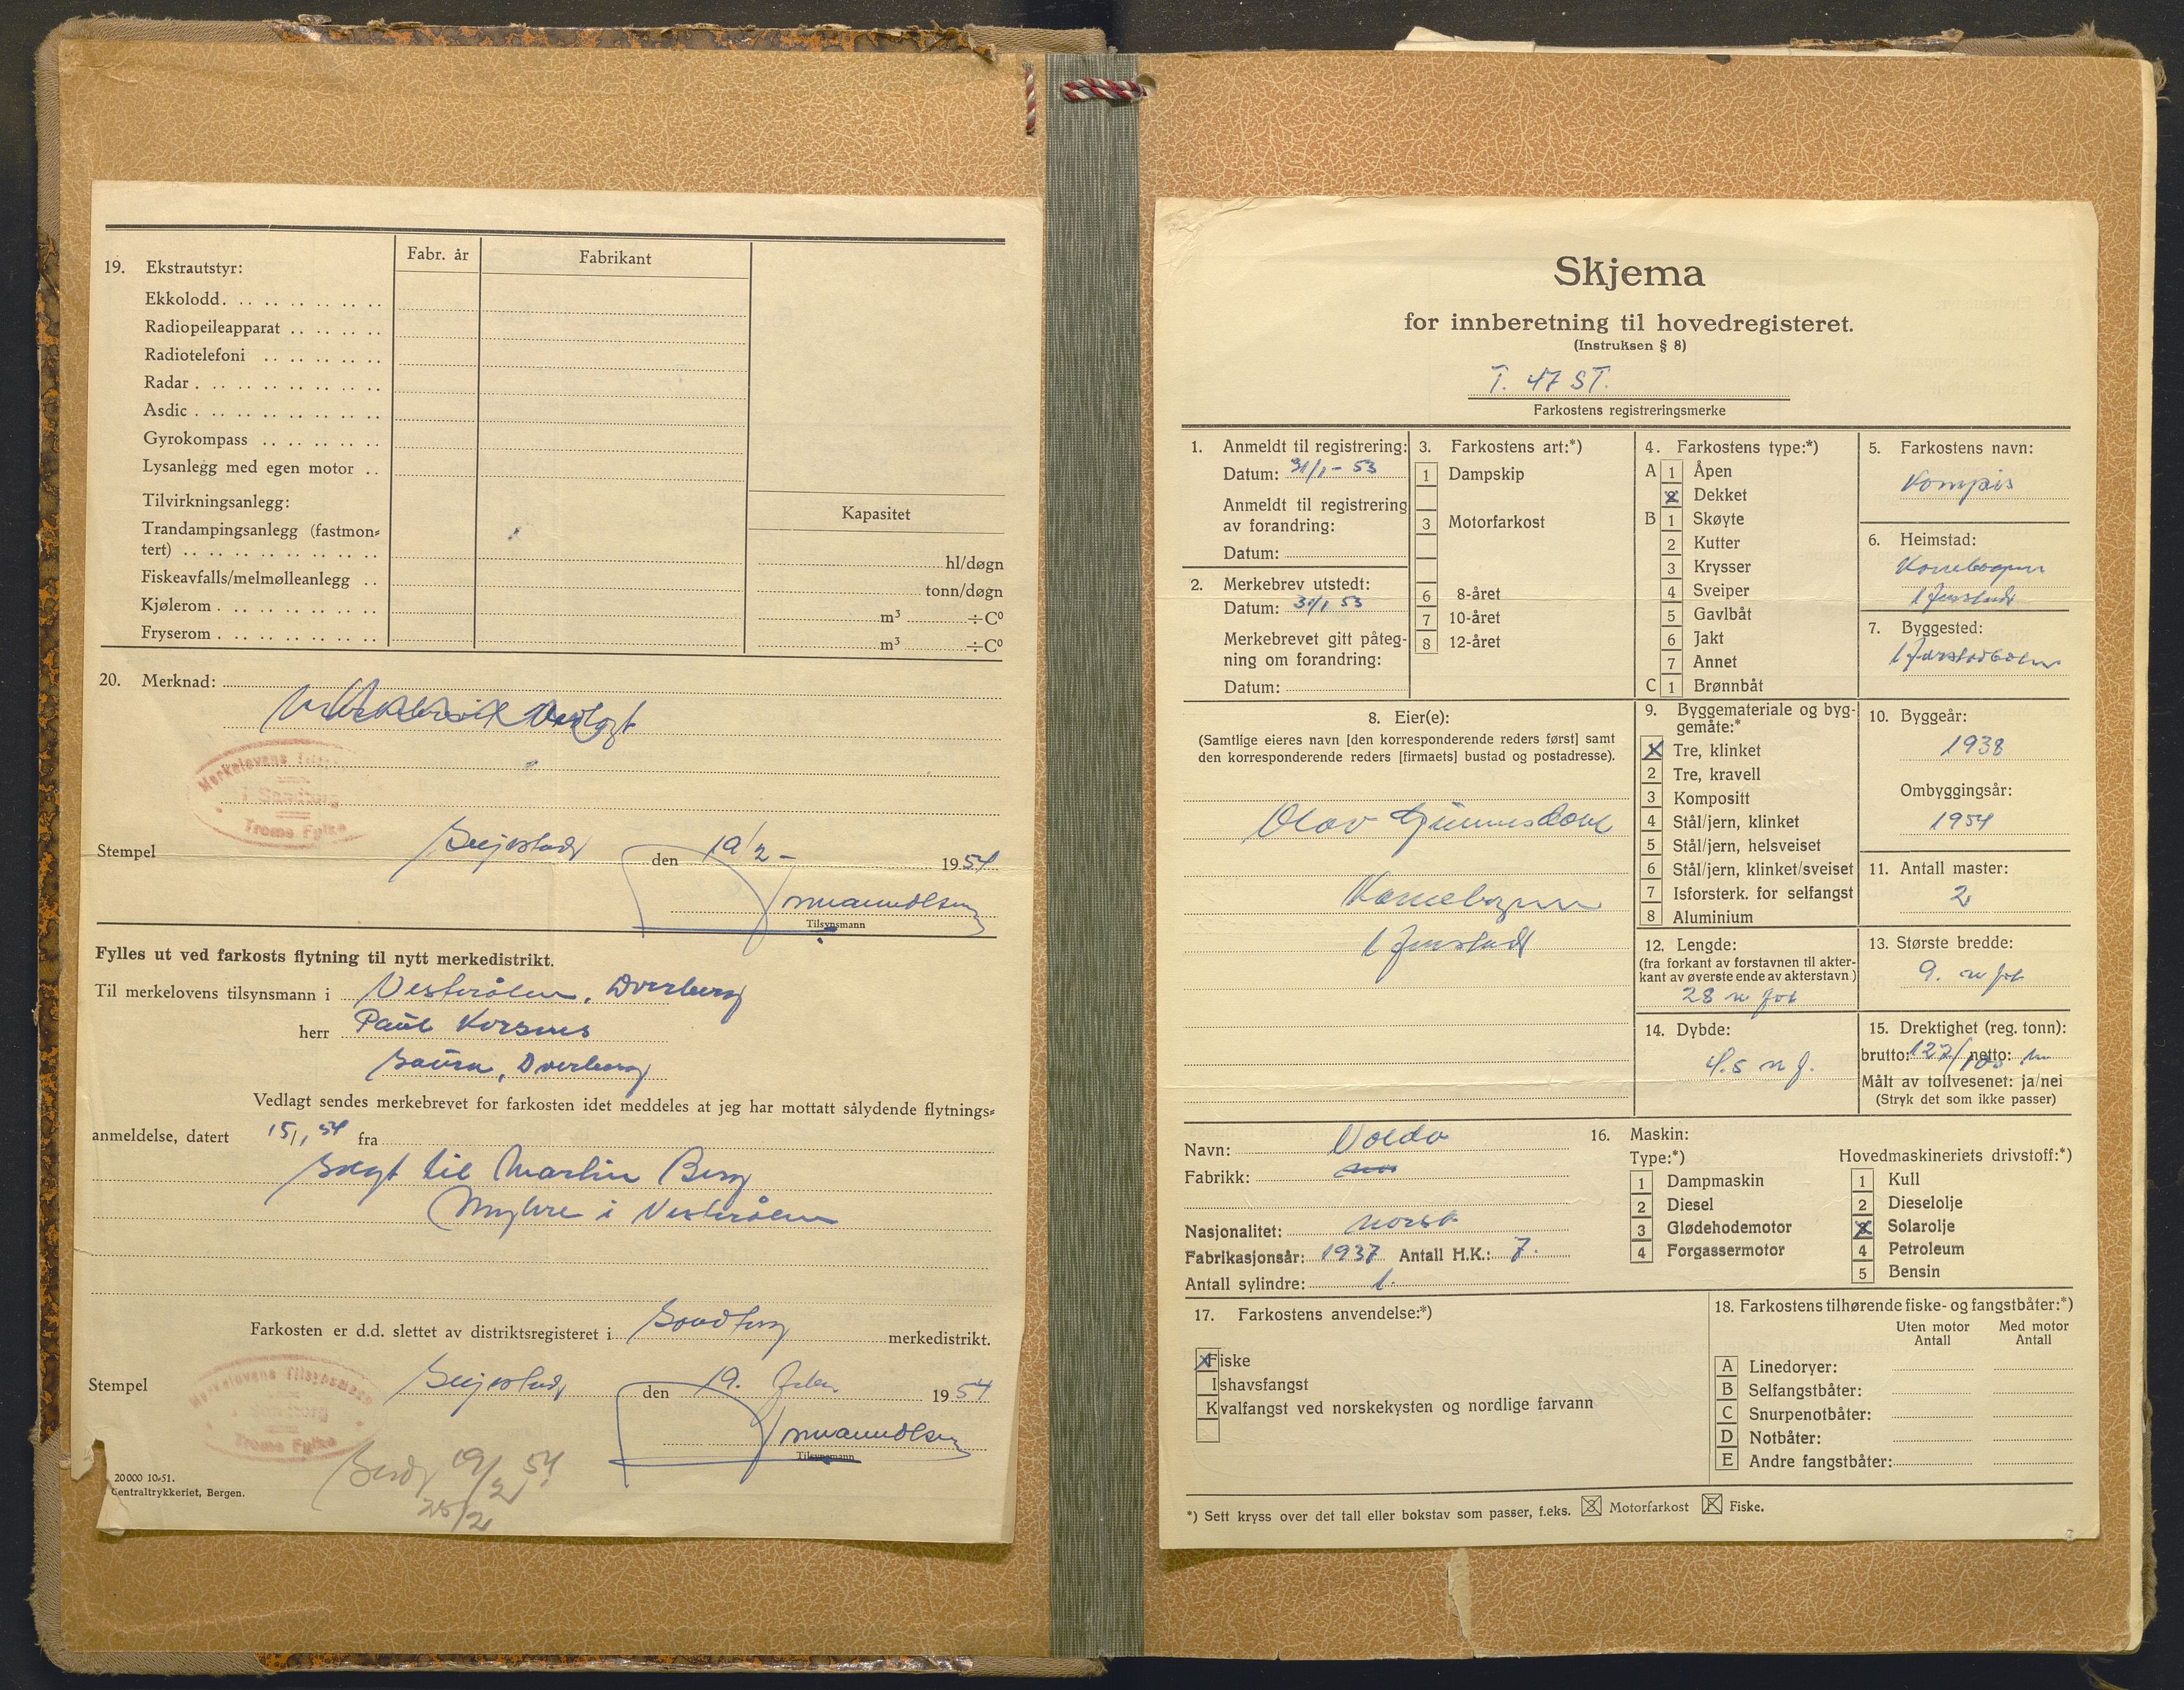 19. Ekstrautstyr:
Fabr. år
Fabrikant
Ekkolodd. . .. .. .. .. ..
Radiopeileapparat .. .. .. ..
Radiotelefoni .. .. .. .. ..
Radar . .. .. .. .. .. ..
Asdic . .. .. .. .. .. ..
Gyrokompass .. .. .. .. ..
Lysanlegg med egen motor ..
Tilvirkningsanlegg:
Kapasitet
Trandampingsanlegg (fastmon-
tert) .. .. .. .. .. .. ..
hl/døgn
Fiskeavfalls/melmølleanlegg ..
tonn/døgn
Kjølerom . .. .. .. .. ..
m³ ÷C⁰
Fryserom . .. .. .. .. ..
m³ ÷C⁰
20. Merknad:
Merkebrevet vedlagt
Merkelovens
i Sandtorg
Troms Fylke
Stempel
den 19/2 - 1954
Tilsynsmann
Fylles ut ved farkosts flytning til nytt merkedistrikt.
Til merkelovens tilsynsmann i Vesterålen, Dverberg
herr Paul
Saura, Dverberg
Vedlagt sendes merkebrevet for farkosten idet meddeles at jeg har mottatt sålydende flytnings-
anmeldelse, datert 15/1 54 fra
Solgt til Martin Berg
Myhre i Vesterålen
Farkosten er d.d. slettet av distriktsregisteret i Sandtorg merkedistrikt.
Merkelovens Tilsynsmann
Sandtorg
Troms Fylke
Stempel
den 19. Febr. 1954
Tilsynsmann
20000 10-51.
Centraltrykkeriet, Bergen.
Sendt 19/2 54
25/2
Skjema
for innberetning til hovedregisteret.
(Instruksen § 8)
T. 47 ST.
Farkostens registreringsmerke
1. Anmeldt til registrering:
Datum: 31/1 - 53
Anmeldt til registrering
av forandring:
Datum:
2. Merkebrev utstedt:
Datum: 31/1 53
Merkebrevet gitt påteg-
ning om forandring:
Datum:
3. Farkostens art:*)
1 Dampskip
3 Motorfarkost
6 8-året
7 10-året
8 12-året
4. Farkostens type:*)
A 1 Åpen
2 Dekket
B 1 Skøyte
2 Kutter
3 Krysser
4 Sveiper
5 Gavlbåt
6 Jakt
7 Annet
C 1 Brønnbåt
5. Farkostens navn:
Kompis
6. Heimstad:
7. Byggested:
8. Eier(e):
(Samtlige eieres navn [den korresponderende reders først] samt
den korresponderende reders [firmaets] bustad og postadresse).
Olav
9. Byggemateriale og byg-
gemåte:*
1 Tre, klinket
2 Tre, kravell
3 Kompositt
4 Stål/jern, klinket
5 Stål/jern, helsveiset
6 Stål/jern, klinket/sveiset
7 Isforsterk. for selfangst
8 Aluminium
10. Byggeår:
1938
Ombyggingsår:
1954
11. Antall master:
2
12. Lengde:
(fra forkant av forstavnen til akter-
kant av øverste ende av akterstavn)
28 n fot
13. Største bredde:
9. n fot
14. Dybde:
4.5 n f.
15. Drektighet (reg. tonn):
brutto: 127/100 netto:
Målt av tollvesenet: ja/nei
(Stryk det som ikke passer)
Navn: Volda
Fabrikk:
Nasjonalitet: norsk
Fabrikasjonsår: 1937 Antall H.K.: 7.
Antall sylindre: 1.
16. Maskin:
Type:*)
1 Dampmaskin
2 Diesel
3 Glødehodemotor
4 Forgassermotor
Hovedmaskineriets drivstoff:*)
1 Kull
2 Dieselolje
3 Solarolje
4 Petroleum
5 Bensin
17. Farkostens anvendelse:*)
Fiske
Ishavsfangst
Kvalfangst ved norskekysten og nordlige farvann
18. Farkostens tilhørende fiske- og fangstbåter:*)
Uten motor Med motor
Antall Antall
A Linedoryer:
B Selfangstbåter:
C Snurpenotbåter:
D Notbåter:
E Andre fangstbåter:
*) Sett kryss over det tall eller bokstav som passer, f.eks. 3 Motorfarkost F Fiske.